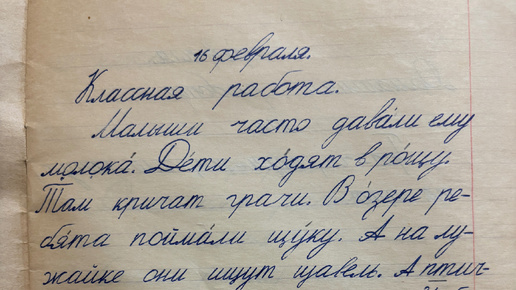 16 февраля.
Классная работа.
Малыши часто дава́ли ему
молока́. Де́ти хо́дят в ро́щу.
Там кричат грачи. В о́зере ре-
бя́та пойма́ли щу́ку. А на лу-
жайке они ищут щавель. А птич-